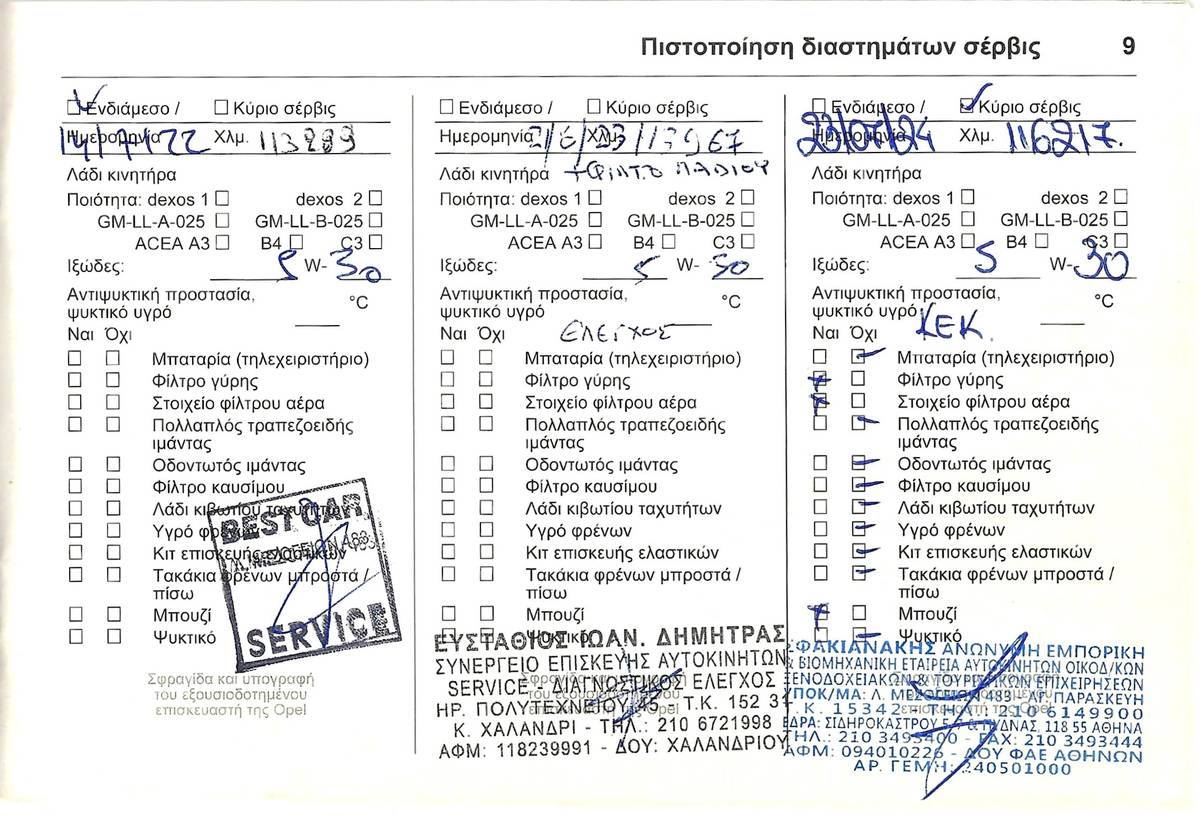 Πιστοποίηση διαστημάτων σέρβις 9
Ενδιάμεσο / Κύριο σέρβις
Ημερομηνία 14/7/22 Χλμ. 113289
Λάδι κινητήρα
Ποιότητα: dexos 1 dexos 2
GM-LL-A-025 GM-LL-B-025
ACEA A3 B4 C3
Ιξώδες: 5 W- 30
Αντιψυκτική προστασία,
ψυκτικό υγρό °C
Ναι Όχι
Μπαταρία (τηλεχειριστήριο)
Φίλτρο γύρης
Στοιχείο φίλτρου αέρα
Πολλαπλός τραπεζοειδής
ιμάντας
Οδοντωτός ιμάντας
Φίλτρο καυσίμου
Λάδι κιβωτίου ταχυτήτων
Υγρό φρένων
Κιτ επισκευής ελαστικών
Τακάκια φρένων μπροστά /
πίσω
Μπουζί
Ψυκτικό
BEST CAR
SERVICE
Σφραγίδα και υπογραφή
του εξουσιοδοτημένου
επισκευαστή της Opel
Ενδιάμεσο / Κύριο σέρβις
Ημερομηνία Χλμ.
Λάδι κινητήρα
Ποιότητα: dexos 1 dexos 2
GM-LL-A-025 GM-LL-B-025
ACEA A3 B4 C3
Ιξώδες: 5 W- 30
Αντιψυκτική προστασία,
ψυκτικό υγρό °C
Ναι Όχι ΕΛΕΓΧΟΣ
Μπαταρία (τηλεχειριστήριο)
Φίλτρο γύρης
Στοιχείο φίλτρου αέρα
Πολλαπλός τραπεζοειδής
ιμάντας
Οδοντωτός ιμάντας
Φίλτρο καυσίμου
Λάδι κιβωτίου ταχυτήτων
Υγρό φρένων
Κιτ επισκευής ελαστικών
Τακάκια φρένων μπροστά /
πίσω
Μπουζί
Ψυκτικό
ΕΥΣΤΑΘΙΟΣ ΙΩΑΝ. ΔΗΜΗΤΡΑΣ
ΣΥΝΕΡΓΕΙΟ ΕΠΙΣΚΕΥΗΣ ΑΥΤΟΚΙΝΗΤΩΝ
SERVICE - ΔΙΑΓΝΩΣΤΙΚΟΣ ΕΛΕΓΧΟΣ
ΗΡ. ΠΟΛΥΤΕΧΝΕΙΟΥ 45 - Τ.Κ. 152 31
Κ. ΧΑΛΑΝΔΡΙ - ΤΗΛ: 210 6721998
ΑΦΜ: 118239991 - ΔΟΥ: ΧΑΛΑΝΔΡΙΟΥ
Ενδιάμεσο / Κύριο σέρβις
Ημερομηνία 23/07/24 Χλμ. 116217.
Λάδι κινητήρα
Ποιότητα: dexos 1 dexos 2
GM-LL-A-025 GM-LL-B-025
ACEA A3 B4 C3
Ιξώδες: 5 W- 30
Αντιψυκτική προστασία,
ψυκτικό υγρό °C
Ναι Όχι ΚΕΚ
Μπαταρία (τηλεχειριστήριο)
Φίλτρο γύρης
Στοιχείο φίλτρου αέρα
Πολλαπλός τραπεζοειδής
ιμάντας
Οδοντωτός ιμάντας
Φίλτρο καυσίμου
Λάδι κιβωτίου ταχυτήτων
Υγρό φρένων
Κιτ επισκευής ελαστικών
Τακάκια φρένων μπροστά /
πίσω
Μπουζί
Ψυκτικό
ΣΦΑΚΙΑΝΑΚΗΣ ΑΝΩΝΥΜΗ ΕΜΠΟΡΙΚΗ
& ΒΙΟΜΗΧΑΝΙΚΗ ΕΤΑΙΡΕΙΑ ΑΥΤΟΚΙΝΗΤΩΝ ΟΙΚΟΔ/ΚΩΝ
ΞΕΝΟΔΟΧΕΙΑΚΩΝ & ΤΟΥΡΙΣΤΙΚΩΝ ΕΠΙΧΕΙΡΗΣΕΩΝ
ΥΠΟΚ/ΜΑ: Λ. ΜΕΣΟΓΕΙΩΝ 483, ΑΓ. ΠΑΡΑΣΚΕΥΗ
Τ.Κ. 15342 - ΤΗΛ: 210 6149900
ΕΔΡΑ: ΣΙΔΗΡΟΚΑΣΤΡΟΥ & ΠΥΔΝΑΣ, 118 55 ΑΘΗΝΑ
ΤΗΛ.: 210 3493400 - FAX: 210 3493444
ΑΦΜ: 094010226 - ΔΟΥ ΦΑΕ ΑΘΗΝΩΝ
ΑΡ. ΓΕΜΗ: 240501000